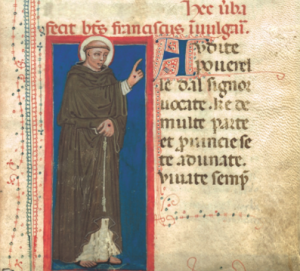 Hec uba
fecit bts franciscus i uulgari.
Audite
pouerel
le dal signor
uocate. ke de
multe parte
et prouincie se
te adunate.
Viuate semp